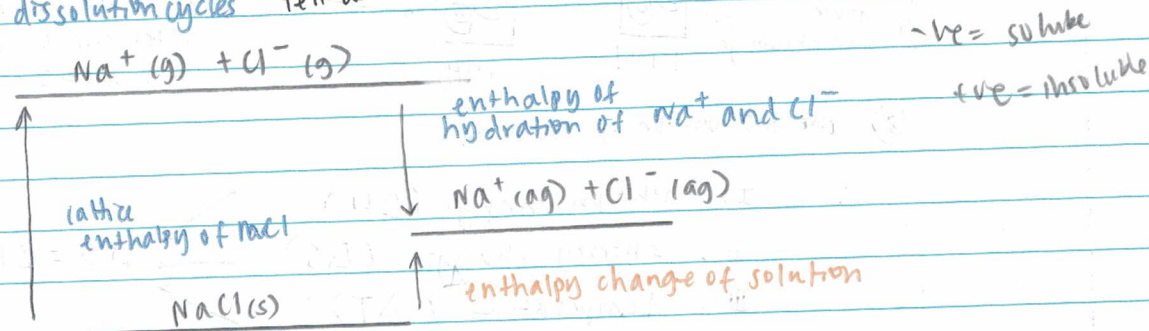 dissolution cycles
-ve = soluble
Na⁺ (g) + Cl⁻ (g)
+ve = insoluble
enthalpy of
hydration of Na⁺ and Cl⁻
Na⁺ (aq) + Cl⁻ (aq)
lattice
enthalpy of NaCl
enthalpy change of solution
NaCl(s)